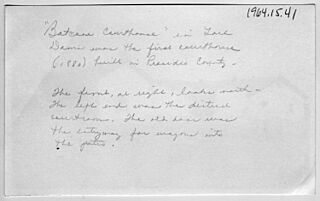 1964.15.41
"Batcave Courthouse" in Fort
Davis was the first courthouse
(1880) built in Presidio County.
The front, at right, looks north.
The left end was the district
courtroom. The old door was
the entryway for wagons into
the patio.